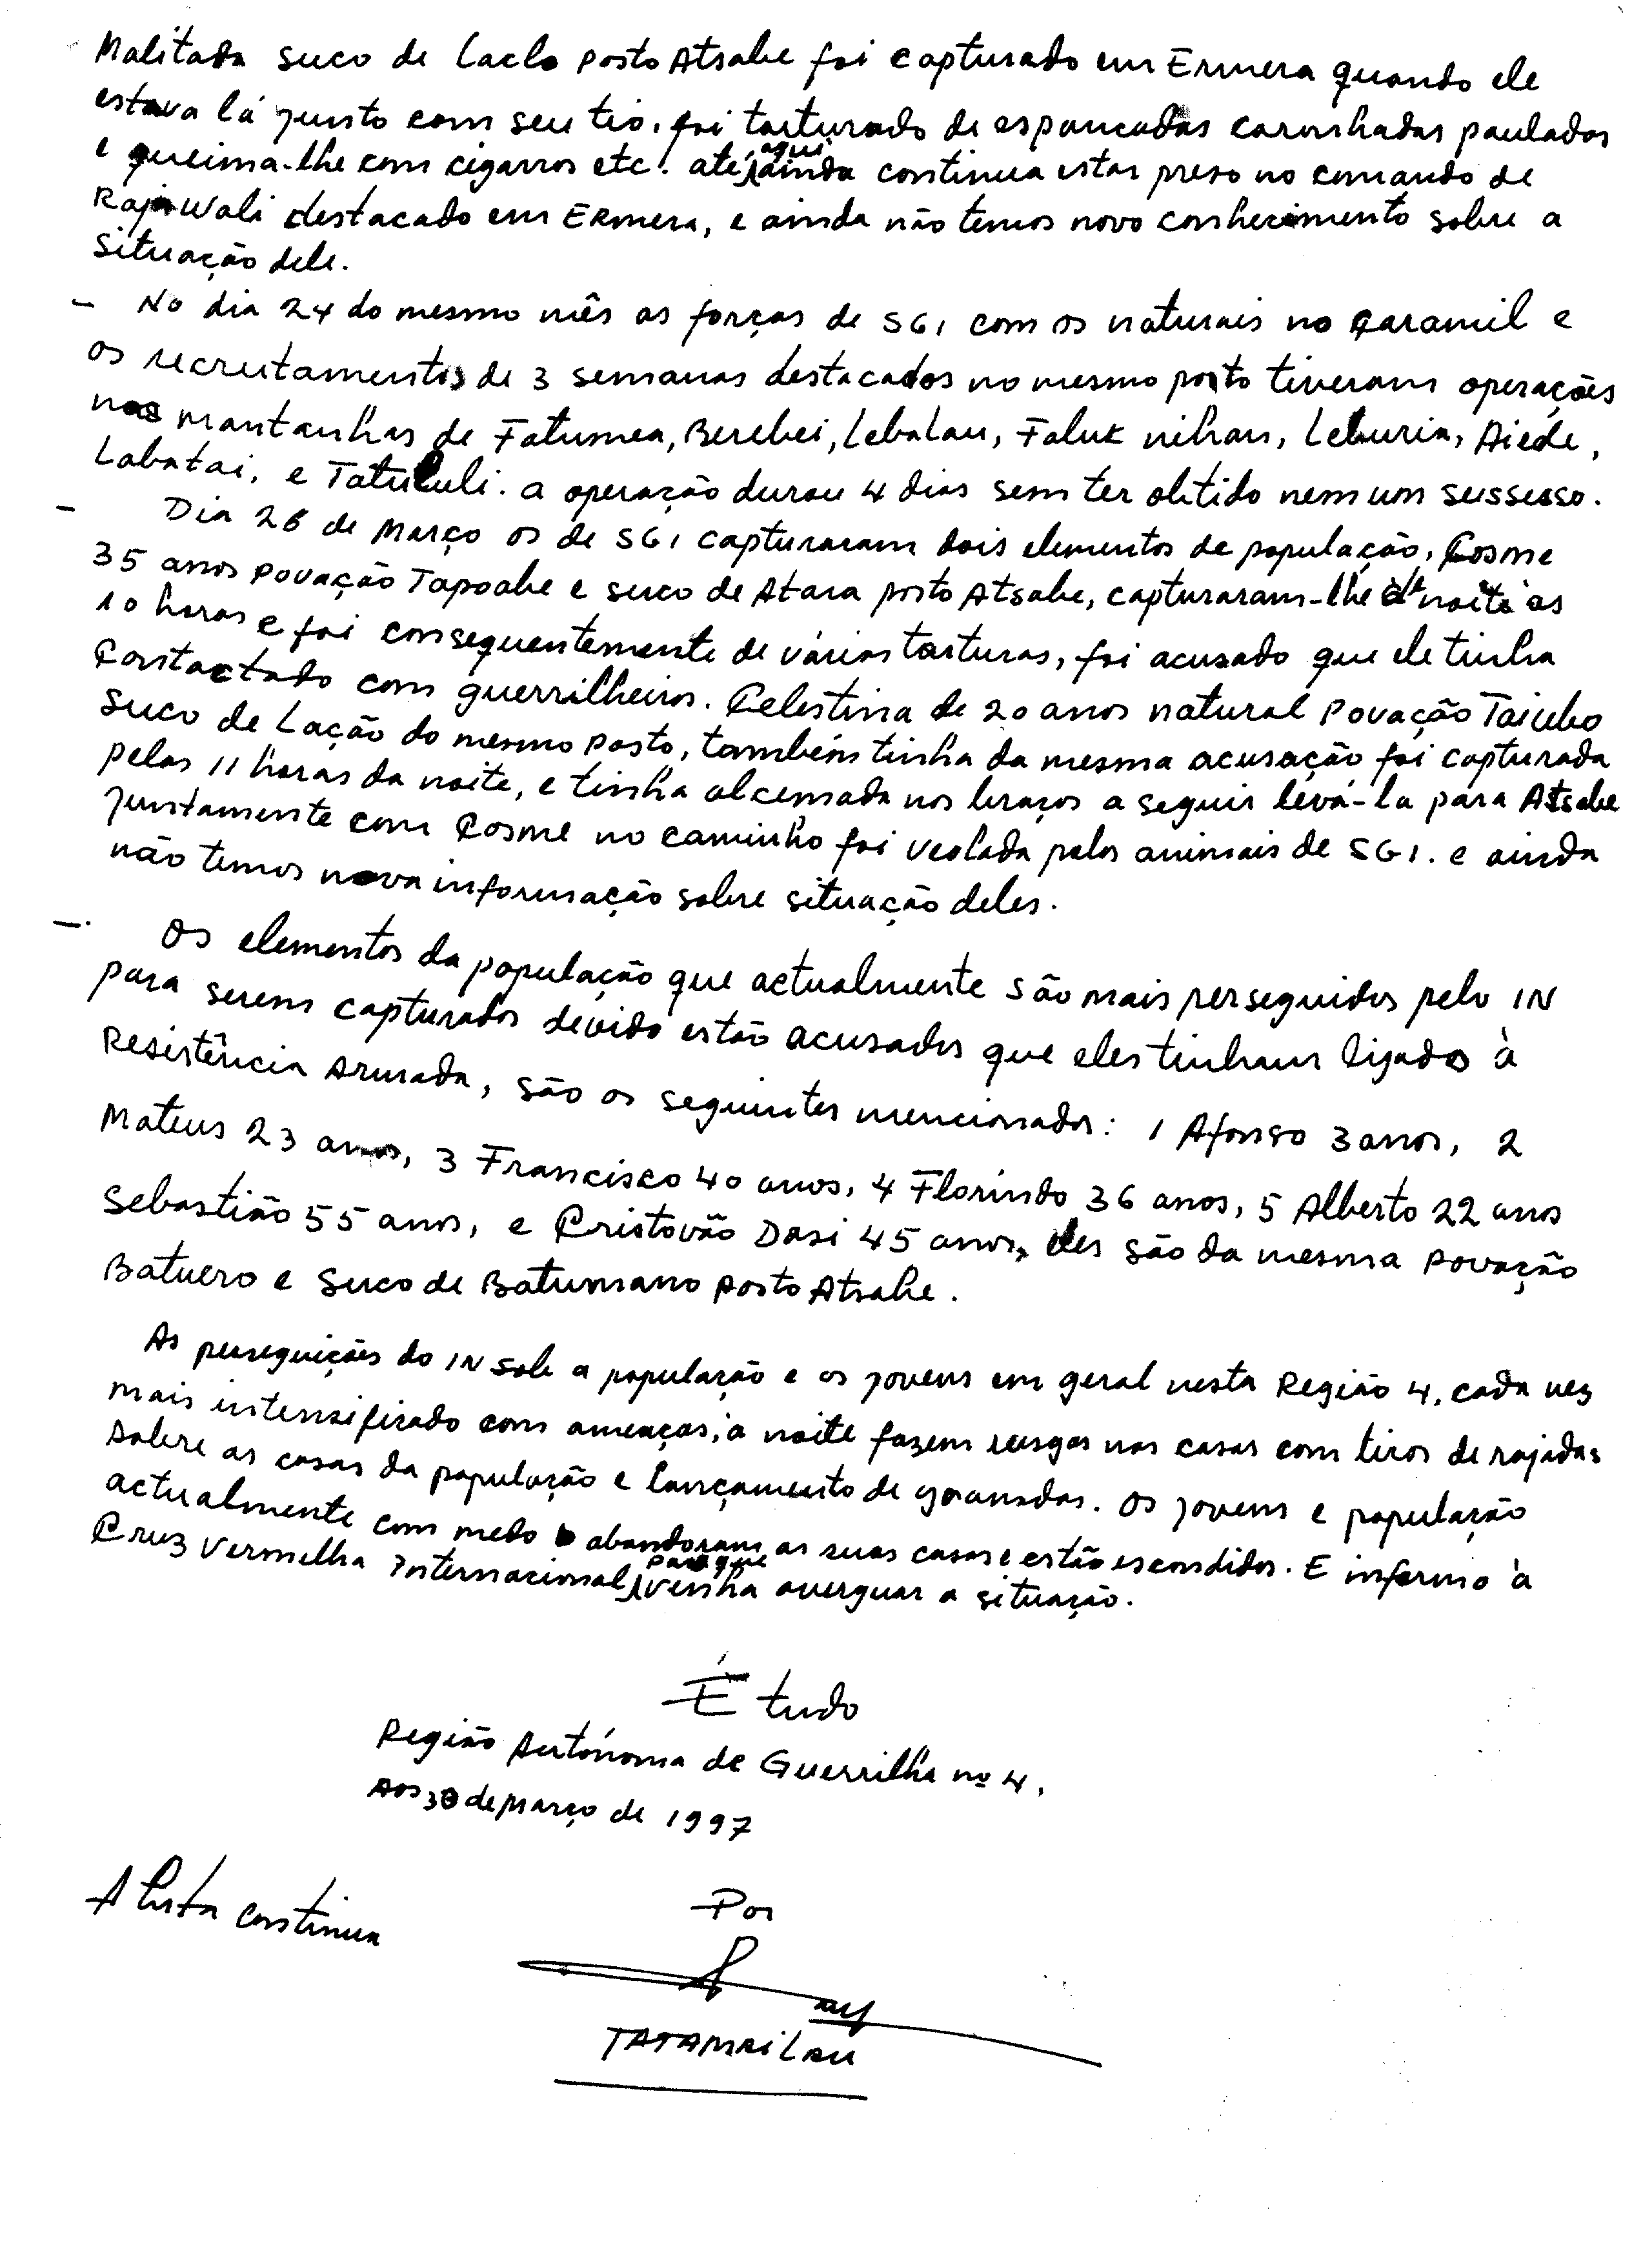 Malitada suco de Laclo posto Atsabe foi capturado em Ermera quando ele
estava lá junto com seu tio, foi torturado de espancadas coronhadas pauladas
e queima-lhe com cigarros etc. até aqui ainda continua estar preso no comando de
Rajawali destacado em Ermera, e ainda não temos novo conhecimento sobre a
situação dele.
- No dia 24 do mesmo mês as forças de SGI com os naturais no Garamil e
os recrutamentos de 3 semanas destacados no mesmo posto tiveram operações
nas montanhas de Fatumea, Berebei, Lebalau, Faluk nihan, Leburia, Aiede,
Labatai, e Tatululi. a operação durou 4 dias sem ter obtido nem um sussesso.
- Dia 26 de Março os de SGI capturaram dois elementos de população, Cosme
35 anos Povoação Tapoabe e suco de Atara posto Atsabe, capturaram-lhe de noite às
10 horas e foi consequentemente de várias torturas, foi acusado que ele tinha
Contactado com guerrilheiros. Celestina de 20 anos natural Povoação Taicubo
suco de Lação do mesmo posto, também tinha da mesma acusação foi capturada
pelas 11 horas da noite, e tinha alcemada nos braços a seguir levá-la para Atsabe
juntamente com Cosme no caminho foi veolada pelos animais de SGI. e ainda
não temos nova informação sobre situação deles.
-. Os elementos da população que actualmente são mais perseguidos pelo IN
para serem capturados devido estão acusados que eles tinham ligados à
Resistência Armada, são os seguintes mencionados: 1 Afonso 3 anos, 2
Mateus 23 anos, 3 Francisco 40 anos, 4 Florindo 36 anos, 5 Alberto 22 anos
Sebastião 55 anos, e Cristovão Dasi 45 anos, eles são da mesma Povoação
Batuero e Suco de Batumano posto Atsabe.
As perseguições do IN sobe a população e os jovens em geral nesta Região 4, cada vez
mais intensificado com ameaças, a noite fazem rusgas nas casas com tiros de rajadas
sobre as casas da população e lançamento de granadas. Os jovens e população
actualmente com medo abandonam as suas casas e estão escondidos. E informo à
Cruz Vermelha Internacional para que venha averguar a situação.
É tudo
Região Autónoma de Guerrilha nº 4,
Aos 30 de Março de 1997
A luta continua
Por
TATAMAILAU